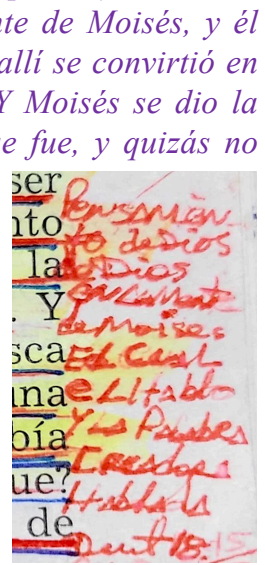 nte de Moisés, y él
allí se convirtió en
Y Moisés se dio la
e fue, y quizás no
ser
nto
la
. Y
sca
una
bía
ue?
de
Pensamien
to de Dios
Dios
en La mente
de Moises
El Cual
el Hablo
Y La Palabra
Creadora
Hablada
Deut 18:15